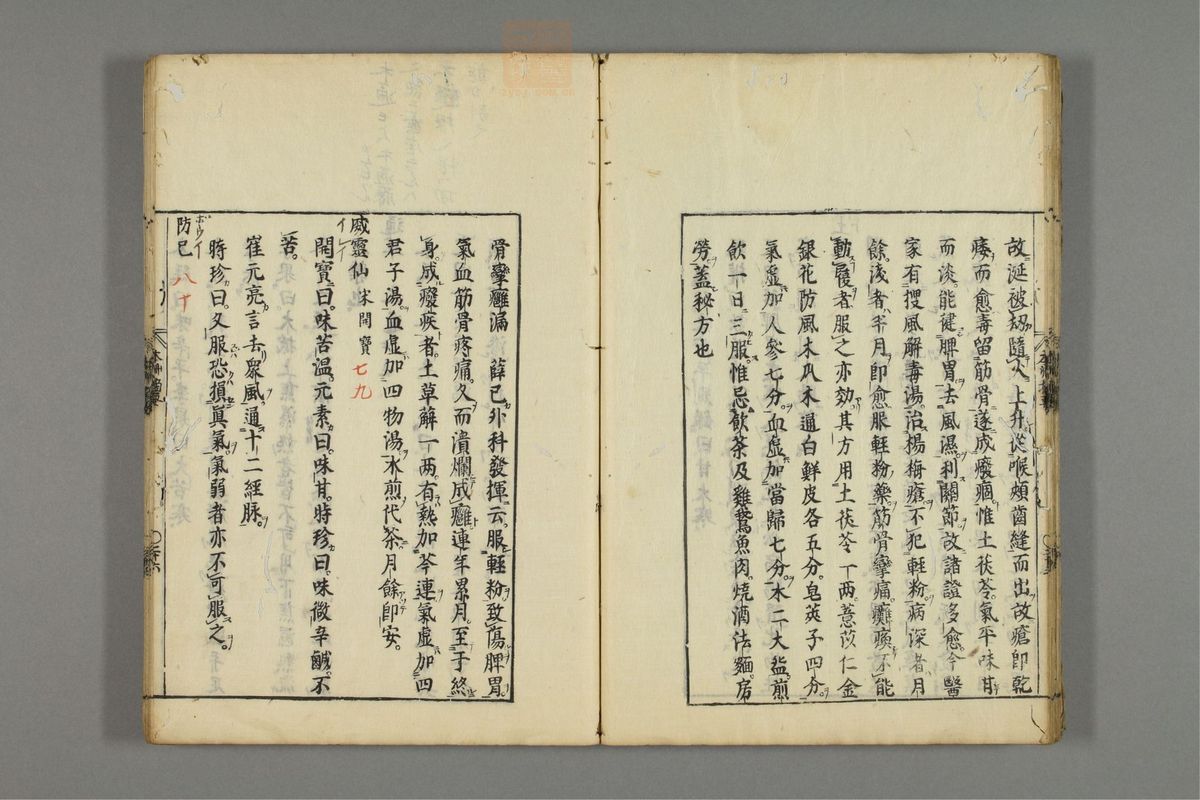 故涎被刼隨人上升從喉頰齒縫而出故瘡即乾
痿而愈毒留筋骨遂成癈痼惟土茯苓氣平味甘
而淡能健脾胃去風濕利關節故諸證多愈今醫
家有搜風解毒湯治楊梅瘡不犯輕粉病深者月
餘淺者半月即愈服輕粉藥筋骨攣痛癱瘓不能
動履者服之亦効其方用土茯苓一兩薏苡仁金
銀花防風木瓜木通白鮮皮各五分皂莢子四分
氣虛加人參七分血虛加當歸七分水二大盌煎
飲一日三服惟忌飲茶及雞鵞魚肉燒酒法麵房
勞蓋秘方也
骨攣癰漏 薛已外科發揮云服輕粉致傷脾胃
氣血筋骨疼痛久而潰爛成癰連年累月至于終
身成癈疾者土草薢一兩有熱加芩連氣虛加四
君子湯血虛加四物湯水煎代茶月餘即安
威靈仙 宋開寶 七九
開寶曰味苦溫元素曰味甘時珍曰味微辛鹹不
苦
崔元亮言去衆風通十二經脉
時珍曰久服恐損眞氣氣弱者亦不可服之
防已 八十